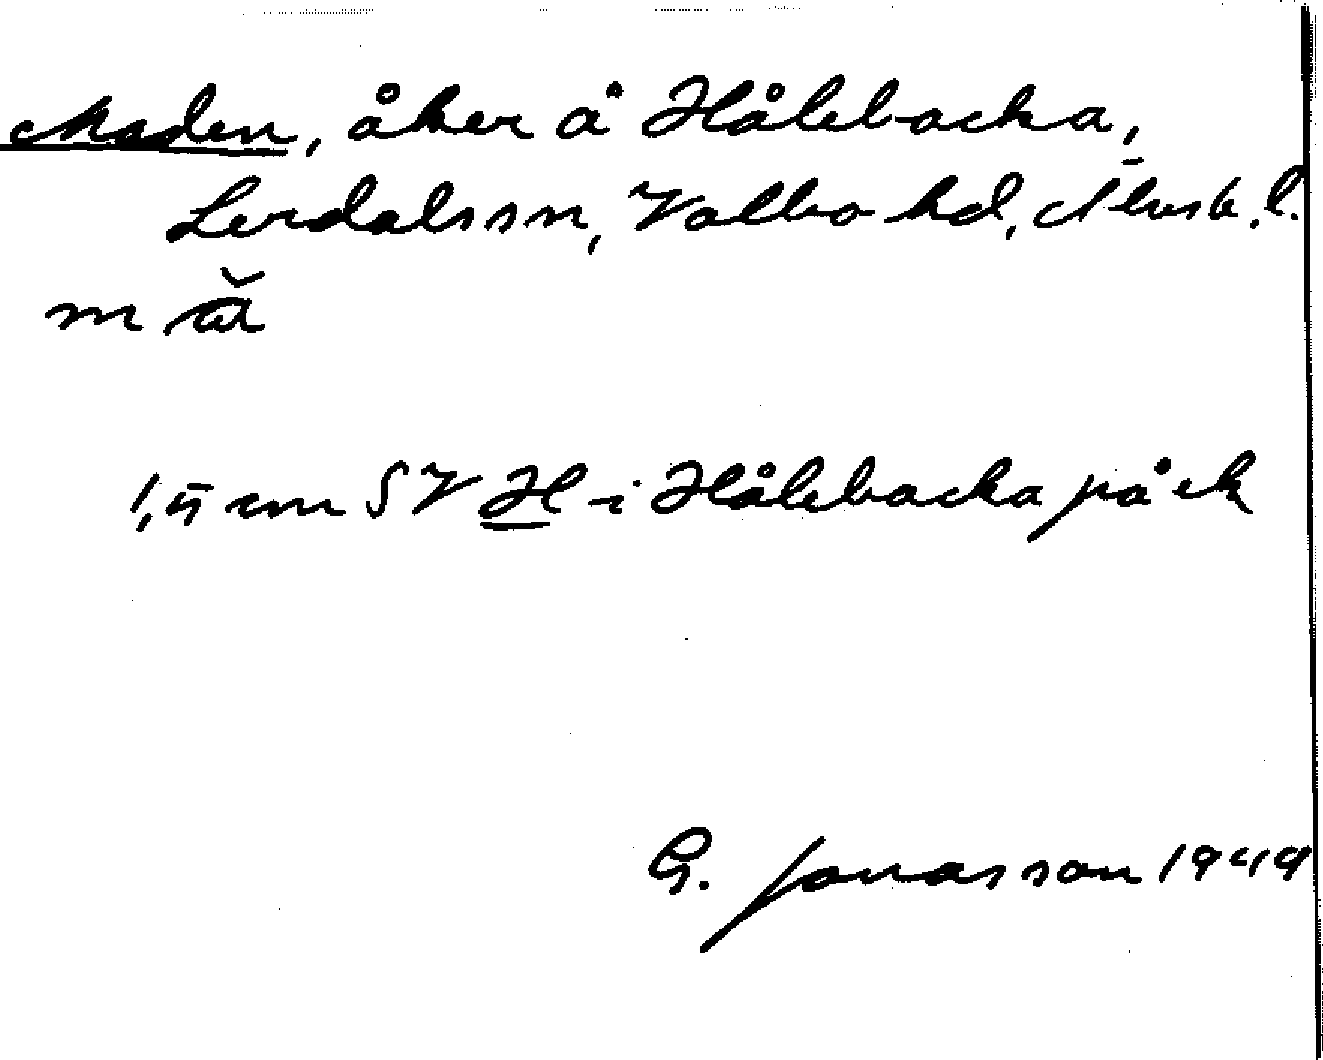 Maden, åker å Hålebacka,
Lerdals sn, Valbo hd, Älvsb. l.
1,5 cm SV H i Hålebacka på ek
G. Jonasson 1949